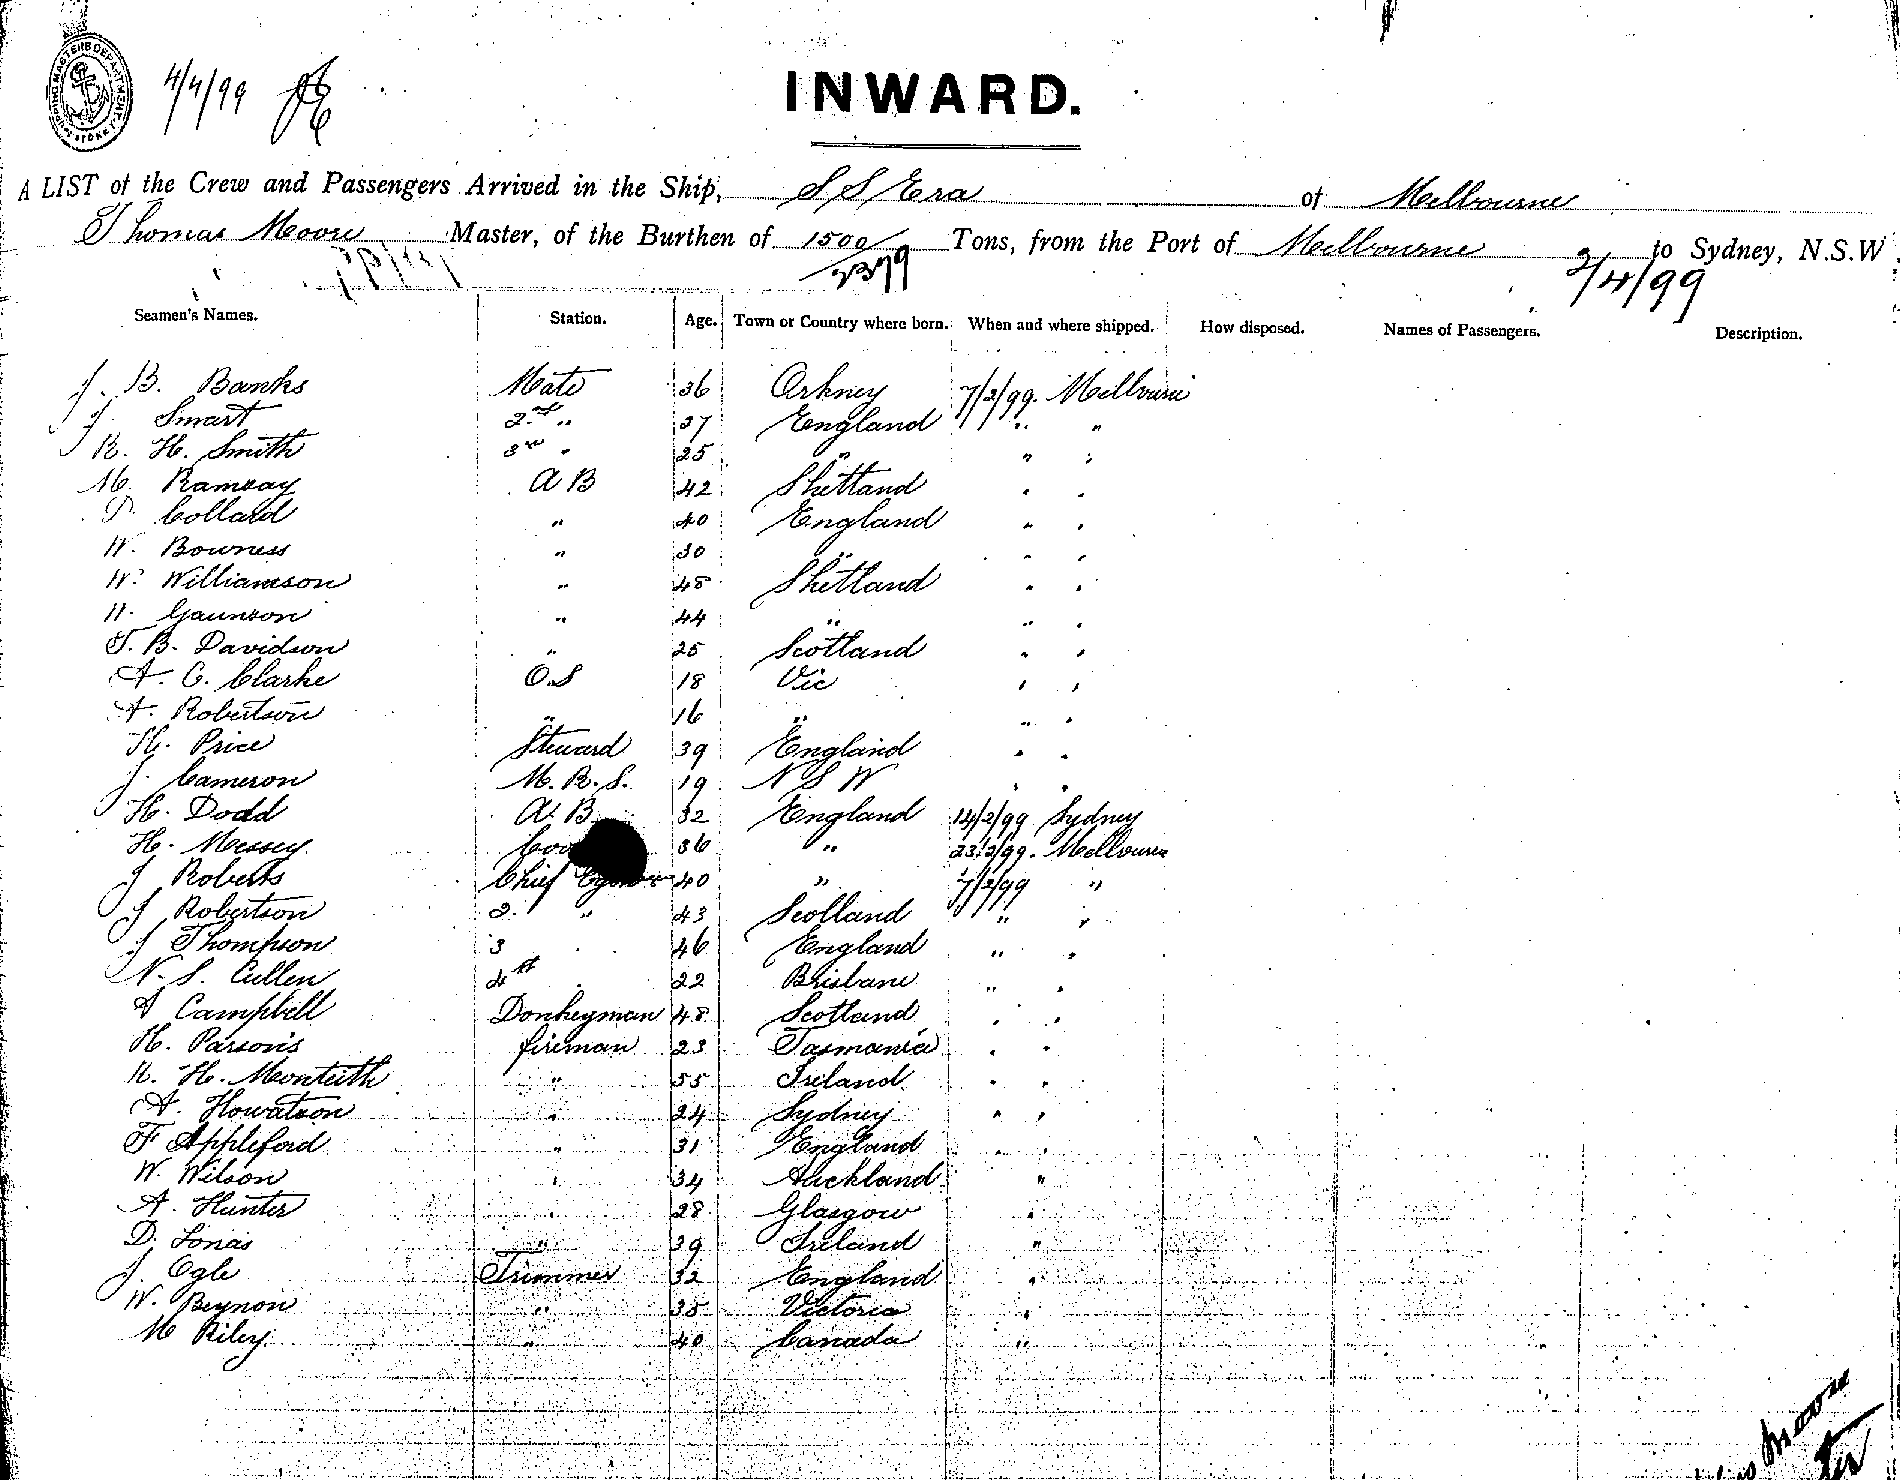 4/4/99
INWARD.
A LIST of the Crew and Passengers Arrived in the Ship, S S Era of Melbourne
Thomas Moore Master, of the Burthen of 1500 Tons, from the Port of Melbourne to Sydney, N.S.W
2379 2/4/99
Seamen's Names. Station. Age. Town or Country where born. When and where shipped. How disposed. Names of Passengers. Description.
J. B. Banks Mate 36 Orkney 7/2/99. Melbourne
J. Smart 2nd " 27 England " "
R. H. Smith 3rd " 25 " " "
M. Ramsay A B 42 Shetland " "
Collard " 40 England " "
W. Bowness " 30 " " "
W. Williamson " 48 Shetland " "
Gaunson " 44 " " "
T. B. Davidson " 25 Scotland " "
A. C. Clarke O.S 18 Vic " "
A. Robertson " 16 " " "
H. Price Steward 39 England " "
J. Cameron M. R. S. 19 N S W " "
H. Dodd A. B 32 England 14/2/99 Sydney
H. Messey 36 " 23/2/99. Melbourne
J Roberts Chief 40 " 7/2/99 "
J Robertson 2. " 43 Scotland " "
J Thompson 3 " 46 England " "
N. S. Cullen 4th " 22 Brisbane " "
A Campbell Donkeyman 48 Scotland " "
H. Parsons fireman 23 Tasmania " "
R. H. Monteith " 55 Ireland " "
A. Howatson " 24 Sydney " "
F Appleford " 31 England " "
W. Wilson " 34 Auckland "
A. Hunter " 28 Glasgow "
D. Jonas " 39 Ireland "
J. Ogle Trimmer 32 England "
W. Beynon " 35 Victoria "
M Riley " 40 Canada "
Moore